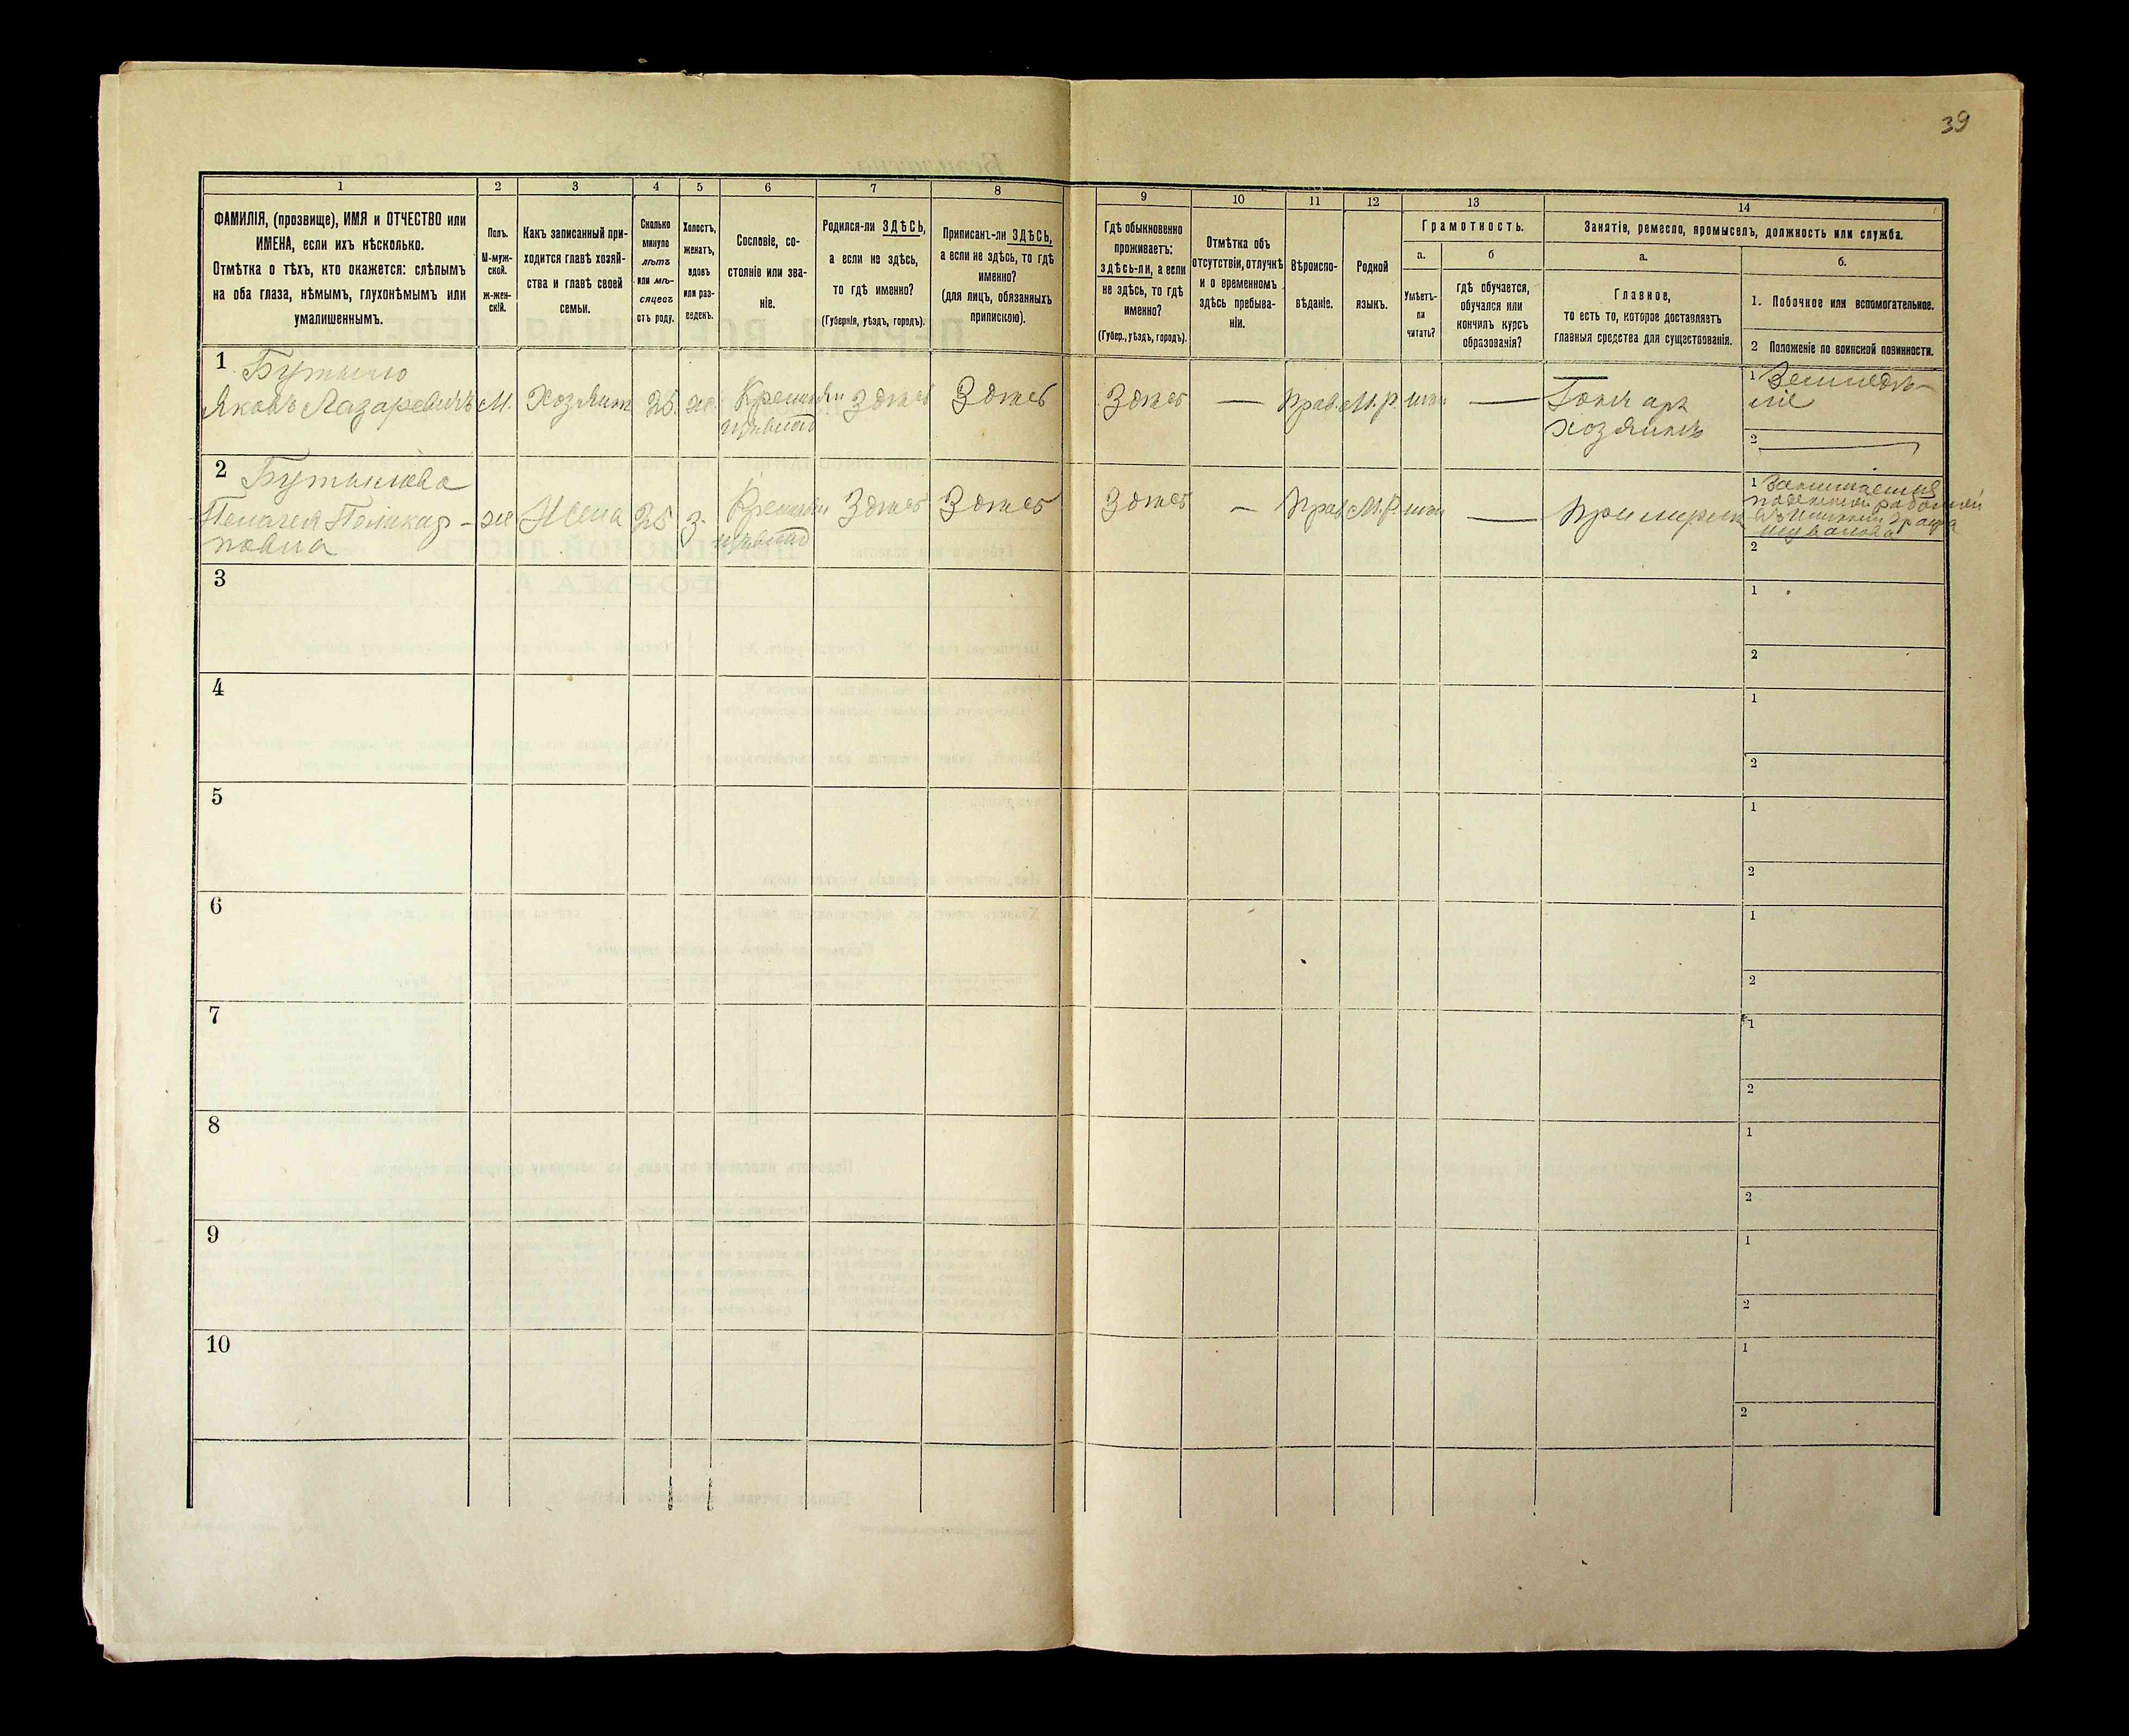 39
1
2
3
4
5
6
7
8
9
10
11
12
13
14
ФАМИЛІЯ, (прозвище), ИМЯ и ОТЧЕСТВО или
ИМЕНА, если ихъ нѣсколько.
Отмѣтка о тѣхъ, кто окажется: слѣпымъ
на оба глаза, нѣмымъ, глухонѣмымъ или
умалишеннымъ.
Полъ.
М-муж-
ской.
ж-жен-
скій.
Какъ записанный при-
ходится главѣ хозяй-
ства и главѣ своей
семьи.
Сколько
минуло
лѣтъ
или мѣ-
сяцевъ
отъ роду.
Холостъ,
женатъ,
вдовъ
или раз-
веденъ.
Сословіе, со-
стояніе или зва-
ніе.
Родился-ли ЗДѢСЬ,
а если не здѣсь,
то гдѣ именно?
(Губернія, уѣздъ, городъ).
Приписанъ-ли ЗДѢСЬ,
а если не здѣсь, то гдѣ
именно?
(для лицъ, обязанныхъ
припискою).
Гдѣ обыкновенно
проживаетъ:
здѣсь-ли, а если
не здѣсь, то гдѣ
именно?
(Губер., уѣздъ, городъ).
Отмѣтка объ
отсутствіи, отлучкѣ
и о временномъ
здѣсь пребыва-
ніи.
Вѣроиспо-
вѣданіе.
Родной
языкъ.
Грамотность.
а.
Умѣетъ-
ли
читать?
б
гдѣ обучается,
обучался или
кончилъ курсъ
образованія?
Занятіе, ремесло, промыселъ, должность или служба.
а.
Главное,
то есть то, которое доставляетъ
главныя средства для существованія.
б.
1. Побочное или вспомогательное.
2 Положеніе по воинской повинности.
1
Яковъ Лазаревичъ
М.
Хозяинъ
25.
ж.
Здѣсь
Здѣсь
Здѣсь
—
Прав.
М.р.
—
Гончаръ
хозяинъ
1 Земледѣ-
ліе
2
2
Пелагея Поликар-
повна
ж
Жена
25
З.
Здѣсь
Здѣсь
Здѣсь
—
Прав
М.Р.
—
При мужѣ
1 Занимается
2
3
1
2
4
1
2
5
1
2
6
1
2
7
1
2
8
1
2
9
1
2
10
1
2